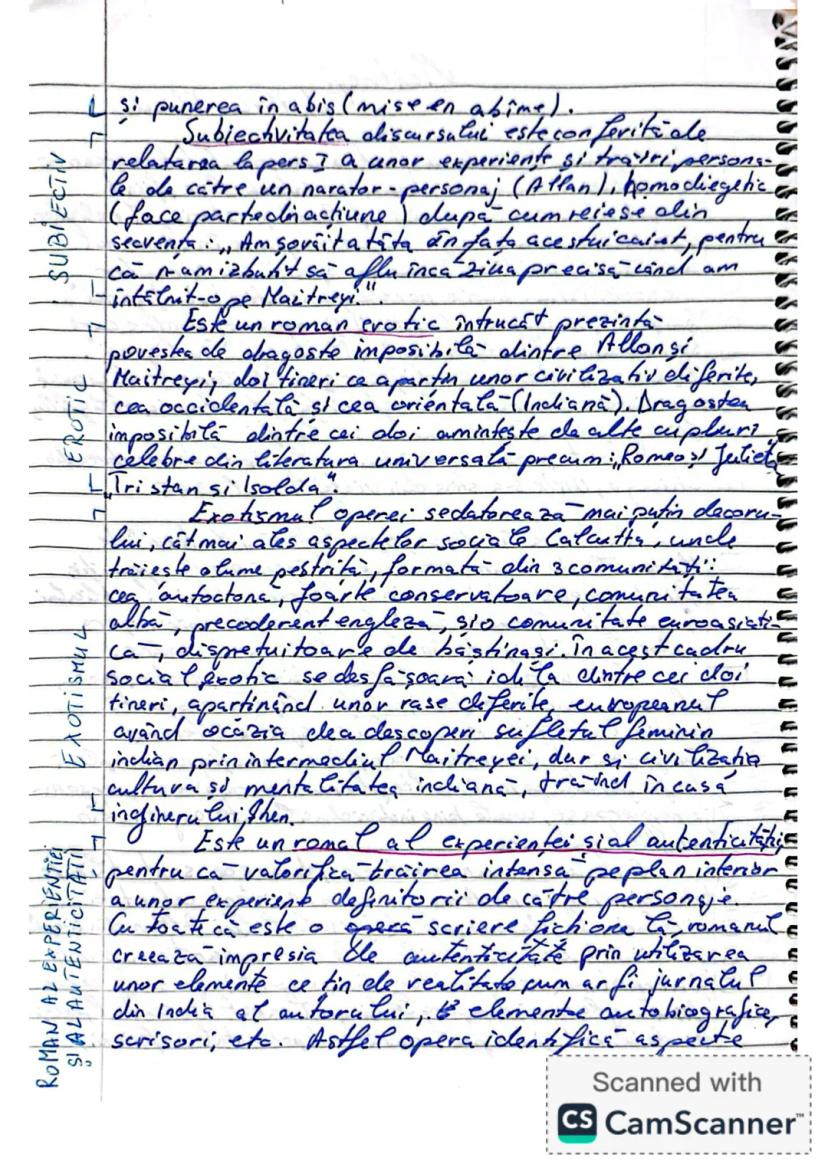 și punerea în abis (mise en abîme).
Subiectivitatea discursului este conferită de
relatarea la pers I a unor experiențe și trăiri persona-
le de către un narator-personaj (Allan), homodiegetic
(face parte din acțiune) după cum reiese din
secvența: „Am șovăit atâta în fața acestui caiet, pentru
că n-am izbutit să aflu încă ziua precisă când am
întâlnit-o pe Maitreyi."
Este un roman erotic întrucât prezintă
povestea de dragoste imposibilă dintre Allan și
Maitreyi, doi tineri ce aparțin unor civilizații diferite,
cea occidentală și cea orientală (Indiană). Dragostea
imposibilă dintre cei doi amintește de alte cupluri
celebre din literatura universală precum: „Romeo și Julieta
„Tristan și Isolda".
Exotismul operei se datorează mai puțin decoru-
lui, cât mai ales aspectelor sociale Calcutta, unde
trăiește o lume pestriță, formată din 3 comunități:
cea autoctonă, foarte conservatoare, comunitatea
albă, precoderent engleză, și o comunitate euroasiati-
că, disprețuitoare de băștinași. În acest cadru
social exotic se desfășoară idila dintre cei doi
tineri, aparținând unor rase diferite, europeanul
având ocazia de a descoperi sufletul feminin
indian prin intermediul Maitreyei, dar și civilizația
cultura și mentalitatea indiană, trăind în casă
inginerului Shen.
Este un roman al experienței și al autenticității,
pentru că valorifică trăirea intensă pe plan interior
a unor experiențe definitorii de către personaje.
Cu toate că este o operă scriere ficțională, romanul
creează impresia de autenticitate prin utilizarea
unor elemente ce țin de realitate cum ar fi jurnalul
din India al autorului, elemente autobiografice,
scrisori, etc. Astfel opera identifică aspecte
SUBIECTIV
EROTIC
EXOTISMUL
ROMAN AL EXPERIENȚEI
ȘI AL AUTENTICITĂȚII
Scanned with
CS CamScanner™